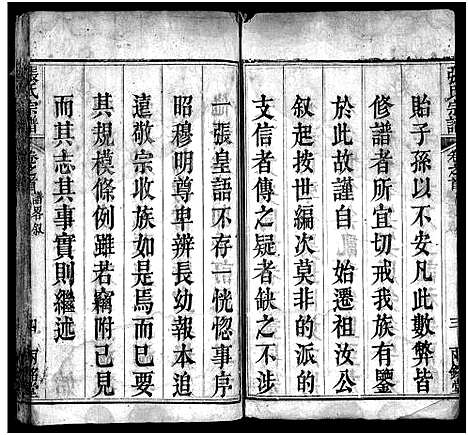 張氏宗譜
卷之首
三
貽子孫以不安凡此數弊皆
修譜者所宜切戒我族有鑒
於此故謹自 始遷祖汝公
叙起按世編次莫非的派的
支信者傳之疑者缺之不涉
一張皇語不存一恍惚事序
昭穆明尊卑辨長幼報本追
遠敬宗收族如是焉而已要
其規模條例雖若竊附己見
而其志其事實則繼述
張氏宗譜
卷之首
譜畧叙
四